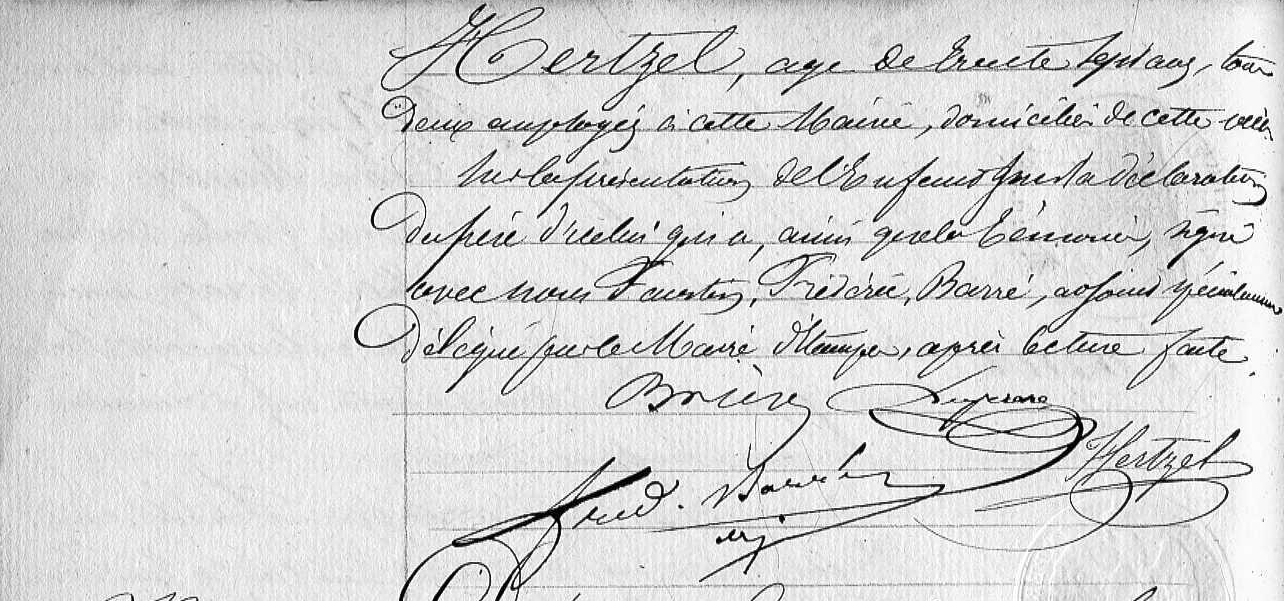 Hertzel, agé de trente sept ans, tous
deux employés à cette Mairie, domiciliés de cette ville
sur la présentation de l'Enfant & sur la déclaration
du père d'icelui qui a, ainsi que les témoins, signé
avec nous Faustin, Frédéric, Barré, adjoint spécialement
délégué par le Maire d'Etampes, après lecture faite.
Brière
Hertzel
Fred. Barré
adj.